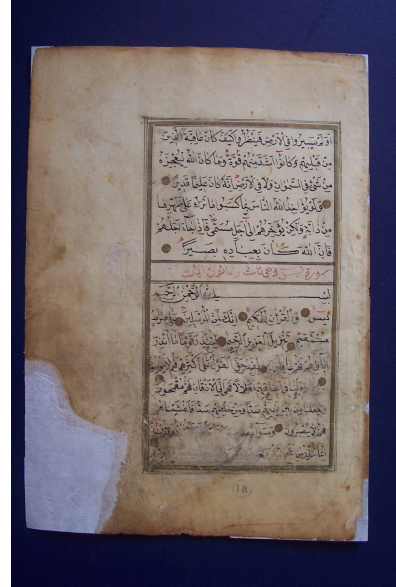 اولم يسيروا في الارض فينظروا كيف كان عاقبة الذين
من قبلهم وكانوا اشد منهم قوة وما كان الله ليعجزه
من شيء في السموات ولا في الارض انه كان عليما قديرا
ولو يؤاخذ الله الناس بما كسبوا ما ترك على ظهرها
من دابة ولكن يؤخرهم الى اجل مسمى فاذا جاء اجلهم
فان الله كان بعباده بصيرا
سورة يس وهي ثلث وثمانون ايات
بسم الله الرحمن الرحيم
يس والقرآن الحكيم انك لمن المرسلين على صراط
مستقيم تنزيل العزيز الرحيم لتنذر قوما ما انذر
اباؤهم فهم غافلون لقد حق القول على اكثرهم فهم
جعلنا في اعناقهم اغلالا فهي الى الاذقان فهم مقمحون
وجعلنا من بين ايديهم سدا ومن خلفهم سدا فاغشيناهم
فهم لا يبصرون وسواء
انما تنذر من
1a